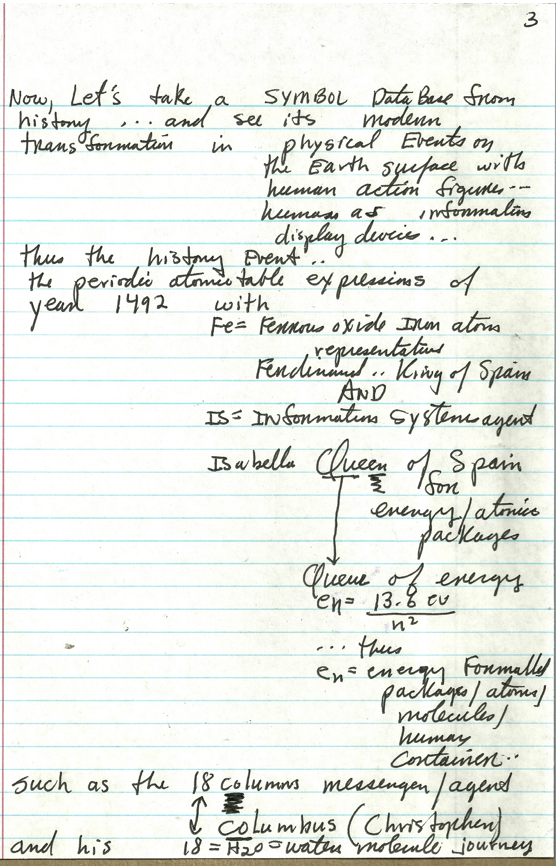 3
Now, Let's take a SYMBOL DataBase from
history ... and see its modern
transformation in physical Events on
the Earth surface with
human action figures...
humans as information
display devices ...
thus the history Event..
the periodic atomic table expressions of
year 1492 with
Fe = Ferrous oxide Iron atom
representative
Ferdinand .. King of Spain
AND
IS = Information system agent
Isabella Queen of Spain
for
energy/atomic
packages
Queue of energy
en = 13.6 ev
n²
... thus
en = energy Formatted
packages/atoms/
molecules/
human
container..
such as the 18 columns messenger/agent
columbus (Christopher)
and his 18 = H2O = water molecule journey